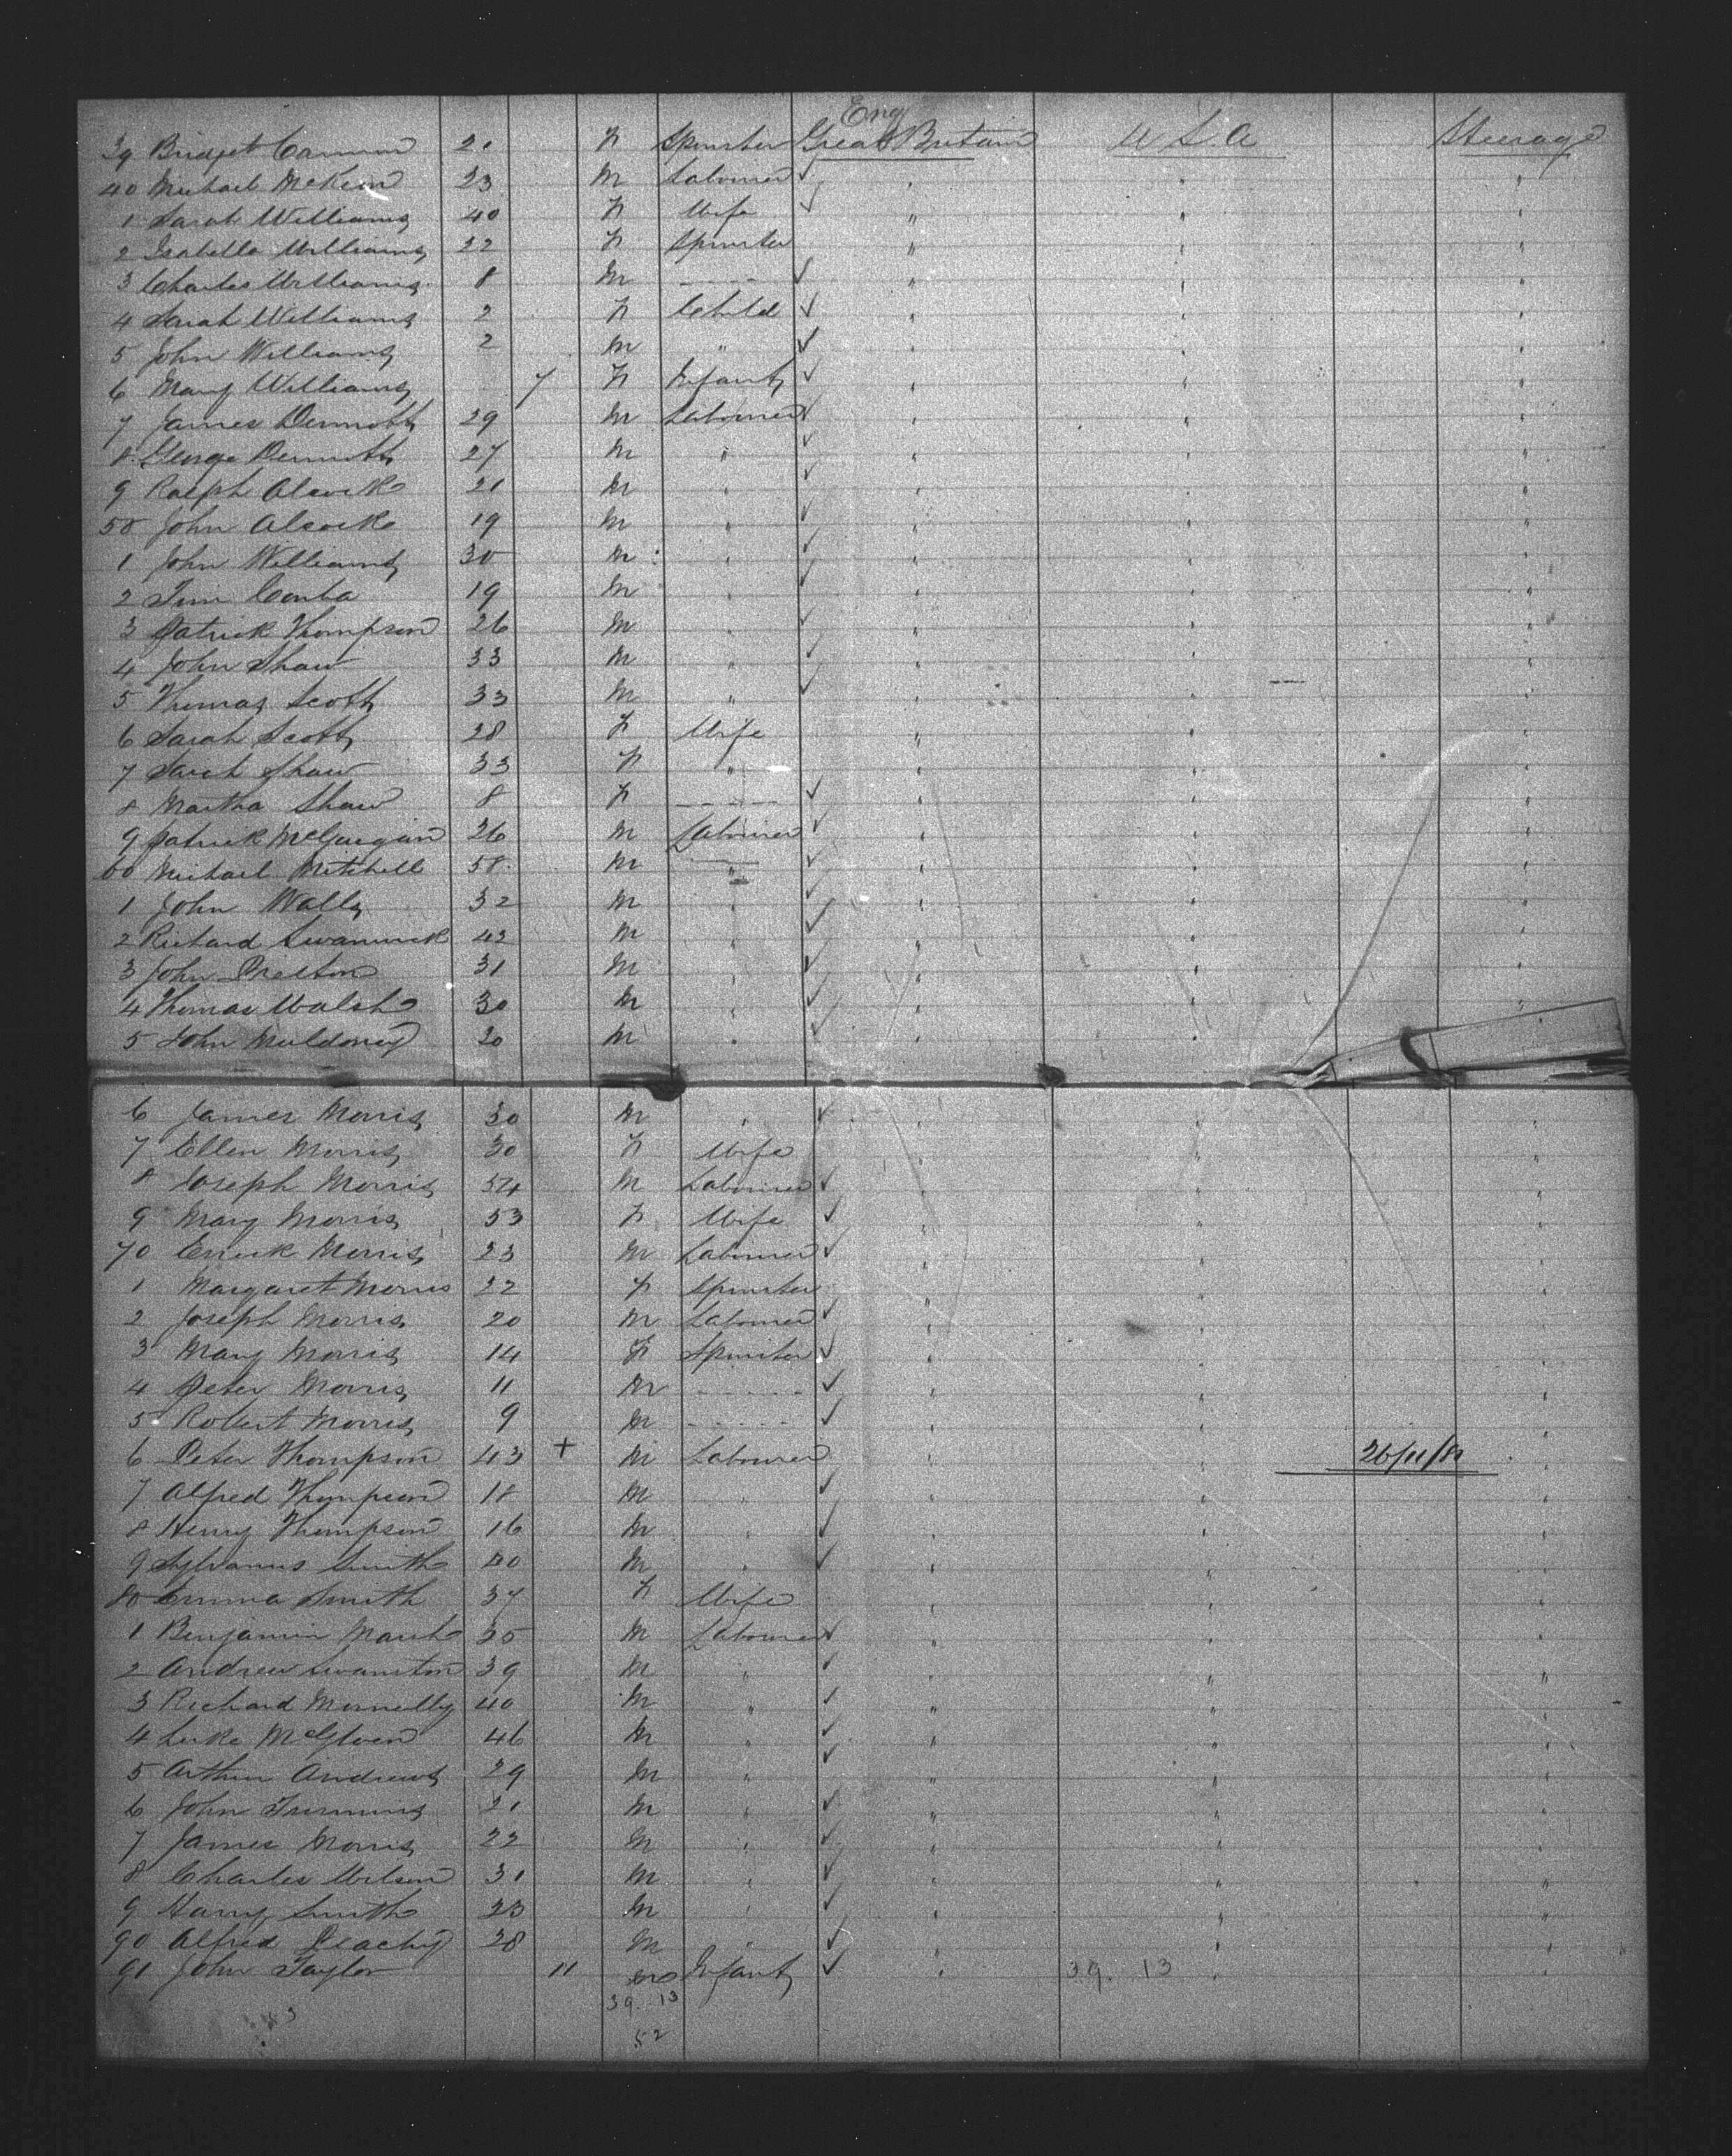 Eng
39 Bridget Cannon 21 F Spinster Great Britain U S A Steerage
40 Michael McKeon 23 M Labourer ✓ " " "
1 Sarah Williams 40 F Wife ✓ " " "
2 Isabella Williams 22 F Spinster " " "
3 Charles Williams 8 M ---- ✓ " " "
4 Sarah Williams 2 F Child ✓ " " "
5 John Williams 2 M " ✓ " " "
6 Mary Williams 7 F Infant ✓ " " "
7 James Dermott 29 M Labourer ✓ " " "
8 George Dermott 27 M " ✓ " " "
9 Ralph Alcock 21 M " ✓ " " "
50 John Alcock 19 M " ✓ " " "
1 John Williams 30 M " ✓ " " "
2 Tim 19 M " ✓ " " "
3 Patrick Thompson 26 M " ✓ " " "
4 John Shaw 33 M " ✓ " " "
5 Thomas Scott 33 M " ✓ " "
6 Sarah Scott 28 F Wife " " "
7 Sarah Shaw 33 F " " " "
8 Martha Shaw 8 F ---- ✓ " " "
9 Patrick McGuigan 26 M Labourer ✓ " " "
60 Michael Mitchell 58 M " ✓ " " "
1 John Walls 32 M " ✓ " " "
2 Richard Swanwick 42 M " ✓ " " "
3 John Preston 31 M " ✓ " " "
4 Thomas Walsh 30 M " ✓ " " "
5 John Muldoney 20 M " ✓ " "
6 James Morris 30 M " ✓ " "
7 Ellen Morris 30 F Wife " " "
8 Joseph Morris 54 M Labourer ✓ " " "
9 Mary Morris 53 F Wife ✓ " " "
70 Morris 23 M Labourer ✓ " " "
1 Margaret Morris 22 F Spinster " " "
2 Joseph Morris 20 M Labourer ✓ " " "
3 Mary Morris 14 F Spinster ✓ " " "
4 Peter Morris 11 M ---- ✓ " " "
5 Robert Morris 9 M ---- ✓ " " "
6 Peter Thompson 43 + M Labourer " " 26/11/81 "
7 Alfred Thompson 18 M " ✓ " " "
8 Henry Thompson 16 M " ✓ " " "
9 Sylvanus Smith 40 M " ✓ " " "
80 Emma Smith 37 F Wife " " "
1 Benjamin March 35 M Labourer ✓ " " "
2 Andrew Swanston 39 M " ✓ " " "
3 Richard 40 M " ✓ " " "
4 Luke McGloen 46 M " ✓ " " "
5 Arthur Andrews 29 M " ✓ " " "
6 John Timmins 21 M " ✓ " " "
7 James Morris 22 M " ✓ " " "
8 Charles Wilson 31 M " ✓ " " "
9 Harry Smith 23 M " ✓ " " "
90 Alfred Peachey 28 M " ✓ " " "
91 John Taylor 11 Infant ✓ " 39. 13 " "
39. 13
52